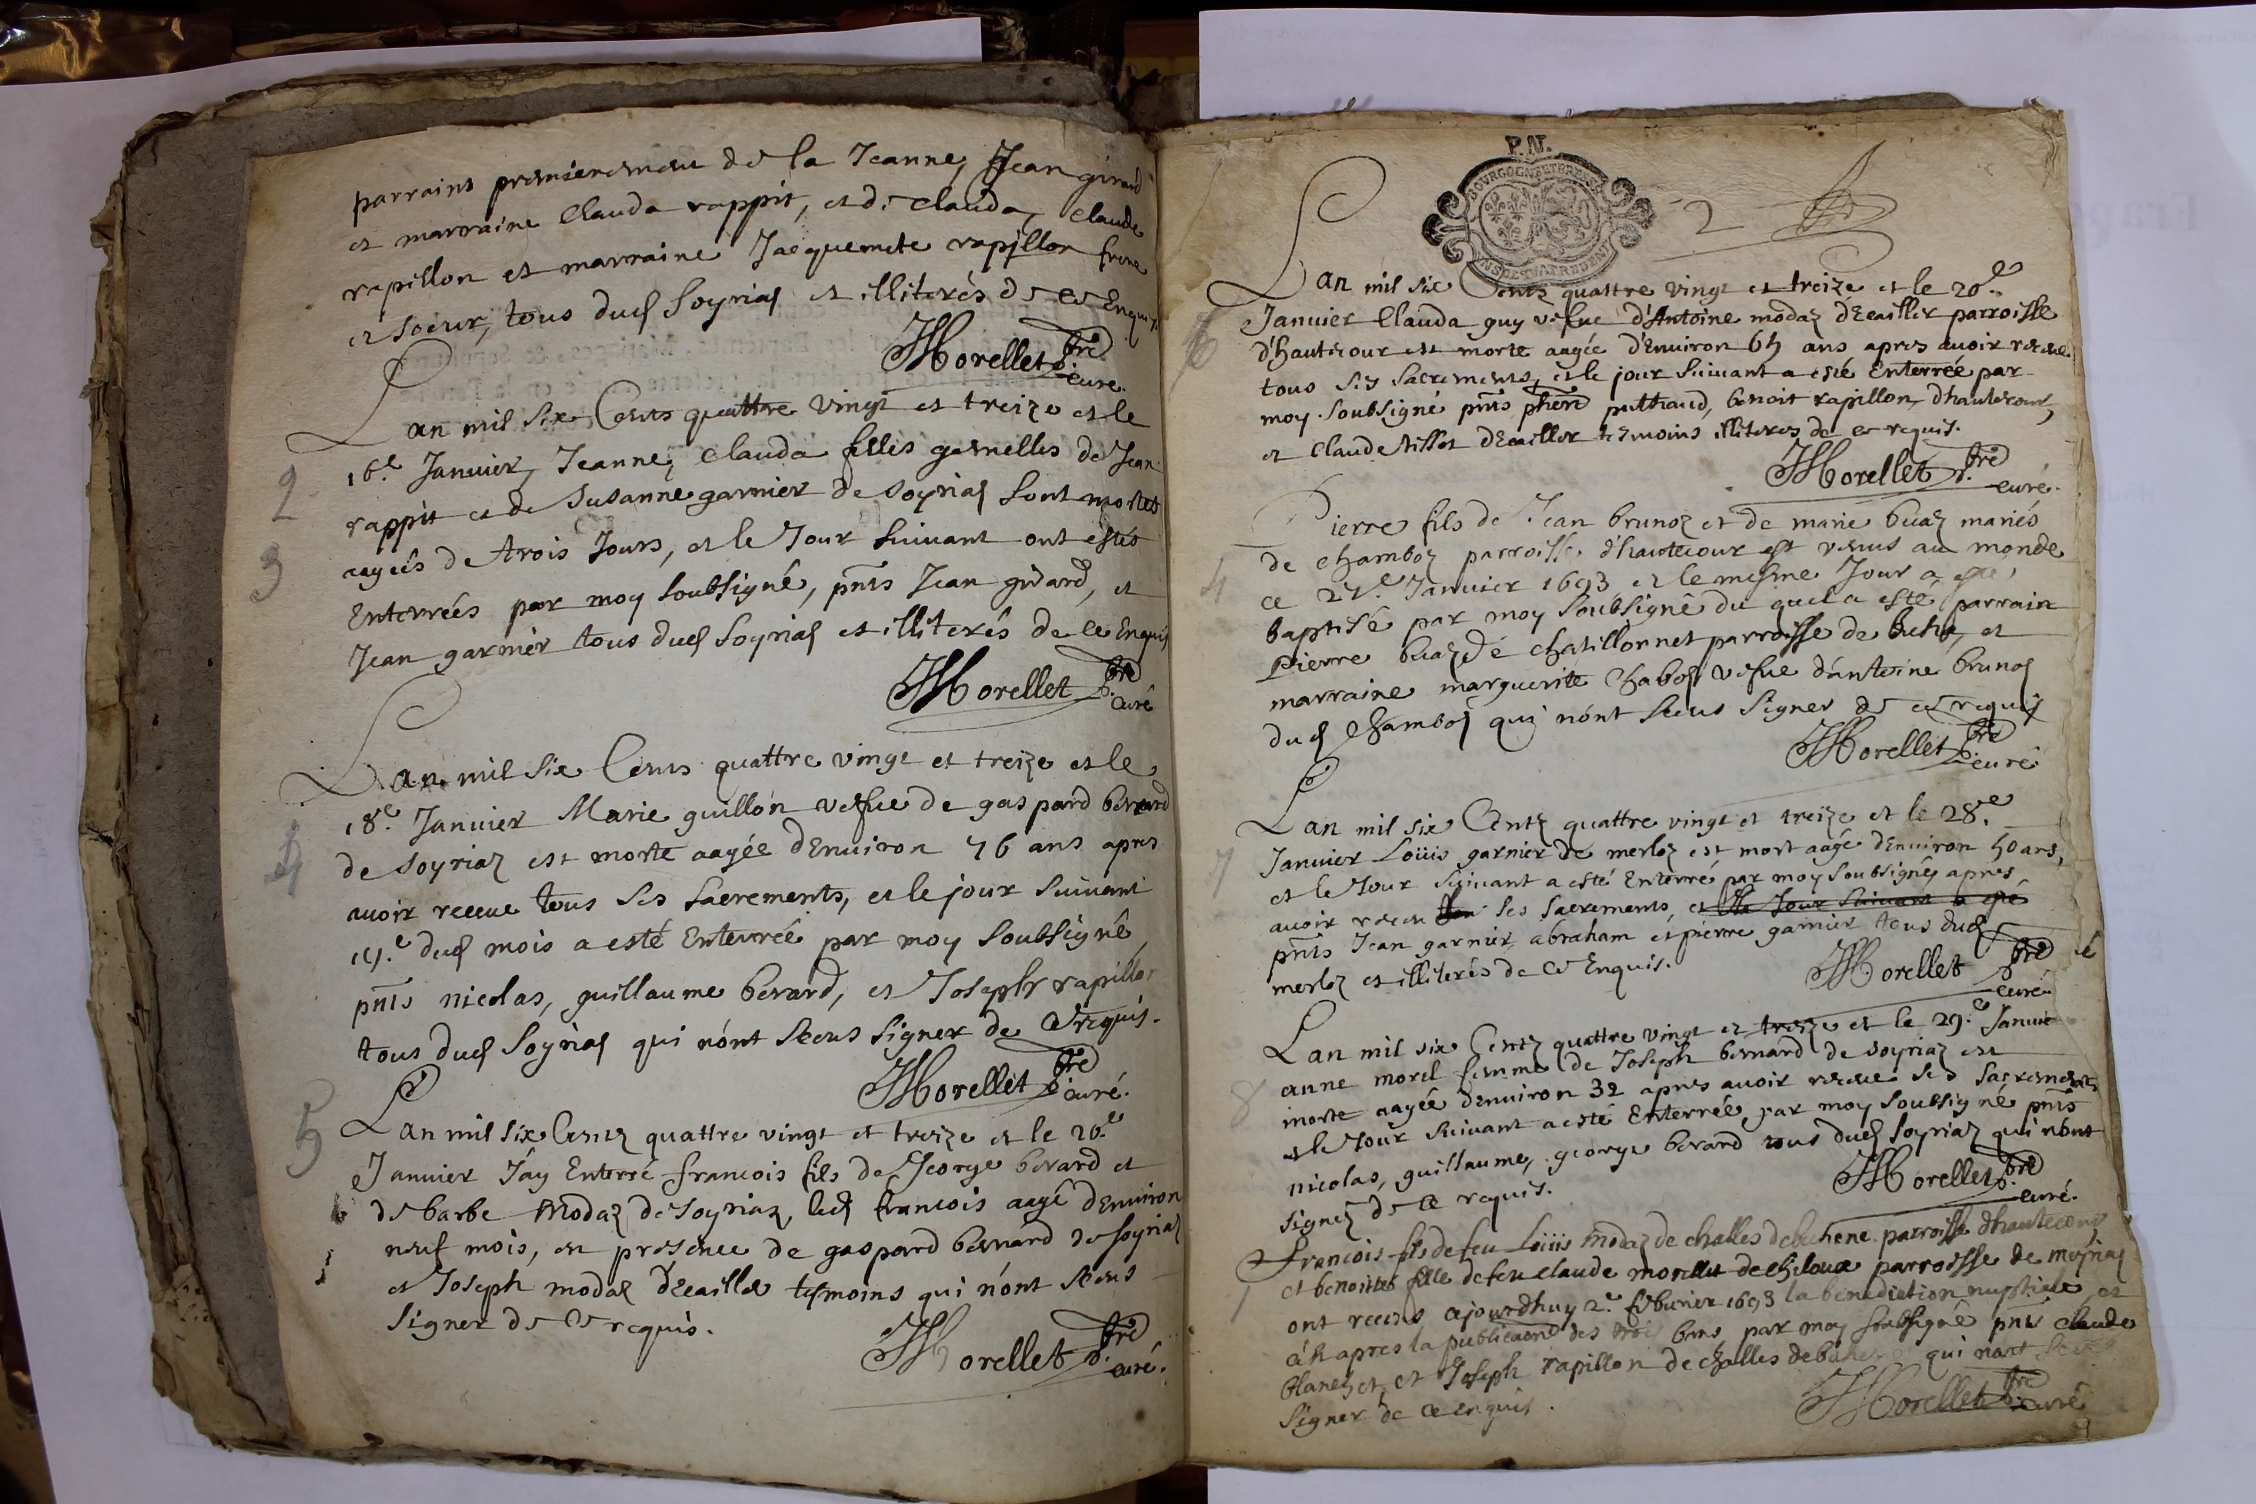 parrains premierement de la Jeanne, Jean girard
et marraine Clauda rappit, et de Clauda, Claude
rapillon et marraine Jacquemete rapillon frere
et soeur, tous dud Soyriaz et illiterés de ce Enquis.
Morellet pbre
curé.
Lan mil six Cents quattre vingt et treize et le
2
16e. Janvier, Jeanne, Clauda filles gemelles de Jean
rappit et de Susanne garnier de Soyriaz sont mortes
3
aagées de trois Jours, et le Jour suivant ont estés
Enterrées par moy soubsigné, pnts Jean girard, et
Jean garnier tous dud Soyriaz et illiterés de ce Enquis
Morellet pbre
curé
Lan mil six Cents quattre vingt et treize et le
18e. Janvier Marie guillon vefve de gaspard berard
4
de Soyriaz est morte aagée dEnviron 76 ans apres
avoir receue tous ses sacrements, et le jour suivant
19.e dud mois a esté Enterrée par moy soubsigné
pnts nicolas, guillaume berard, et Joseph rapillon
tous dud Soyriaz qui n'ont sceus signer de ce requis.
Morellet pbre
curé.
5
Lan mil six Centz quattre vingt et treize et le 20.e
Janvier J'ay Enterré francois fils de George berard et
de barbe Modaz de Soyriaz, led francois aagé dEnviron
neuf mois, en presence de gaspard bernard de Soyriaz
et Joseph modaz d'Ecailler tesmoins qui n'ont sceus
signer de ce requis.
Morellet pbre
curé.
P.N.
BOURGOGNE ET BRESSE
2
Lan mil six Cents quattre vingt et treize et le 20.e
6
Janvier Clauda guy vefve d'Antoine modaz d'Ecailler parroisse
d'hautecour est morte aagée d'Environ 65 ans apres avoir receue
tous ses sacrements, et le jour suivant a esté Enterrée par
moy soubsigné pnts puthaud, benoit rapillon, d'hautecour,
et Claude tissot dEcailler temoins illiteres de ce requis.
Morellet pbre
curé.
Pierre fils de Jean brunoz et de marie buaz mariés
de chamboz parroisse d'hautecour est venus au monde
4
ce 27.e Janvier 1693 et le mesme Jour a esté
baptisé par moy soubsigné du quel a esté parrain
Pierre buaz de chatillonnet parroisse de et
marraine marguerite Chaboz vefve d'antoine brunoz
dud Chamboz qui n'ont sceus signer de ce requis
Morellet pbre
curé
Lan mil six Centz quattre vingt et treize et le 28.e
7
Janvier Loüis garnier de merloz est mort aagé dEnviron 50 ans,
et le Jour suivant a esté Enterré par moy soubsigné, apres
avoir receu ses sacrements, et le Jour suivant a esté
pnts Jean garnier, abraham et pierre garnier tous dud
merloz et illiterés de ce Enquis.
Morellet pbre
curé.
Lan mil six Centz quattre vingt et treize et le 29.e Janvier
anne morel femme de Joseph bernard de Soyriaz est
8
morte aagée denviron 32 apres avoir receue ses sacrements
et le Jour suivant a esté Enterrée par moy soubsigné pnts
nicolas, guillaume, george berard tous dud Soyriaz qui n'ont
signez de ce requis.
Morellet pbre
curé.
francois fils de feu Loüis modaz de challes parroisse dhautecour
1
et benoitte fille de feu claude morellet de parroisse de
ont receus ajourdhuy 2.e febvrier 1693 la benediction nuptiale
apres la publication des trois bans, par moy soubsigné pnts claude
blanchet, et Joseph rapillon de challes qui n'ont sceus
signer de ce enquis.
Morellet pbre
curé